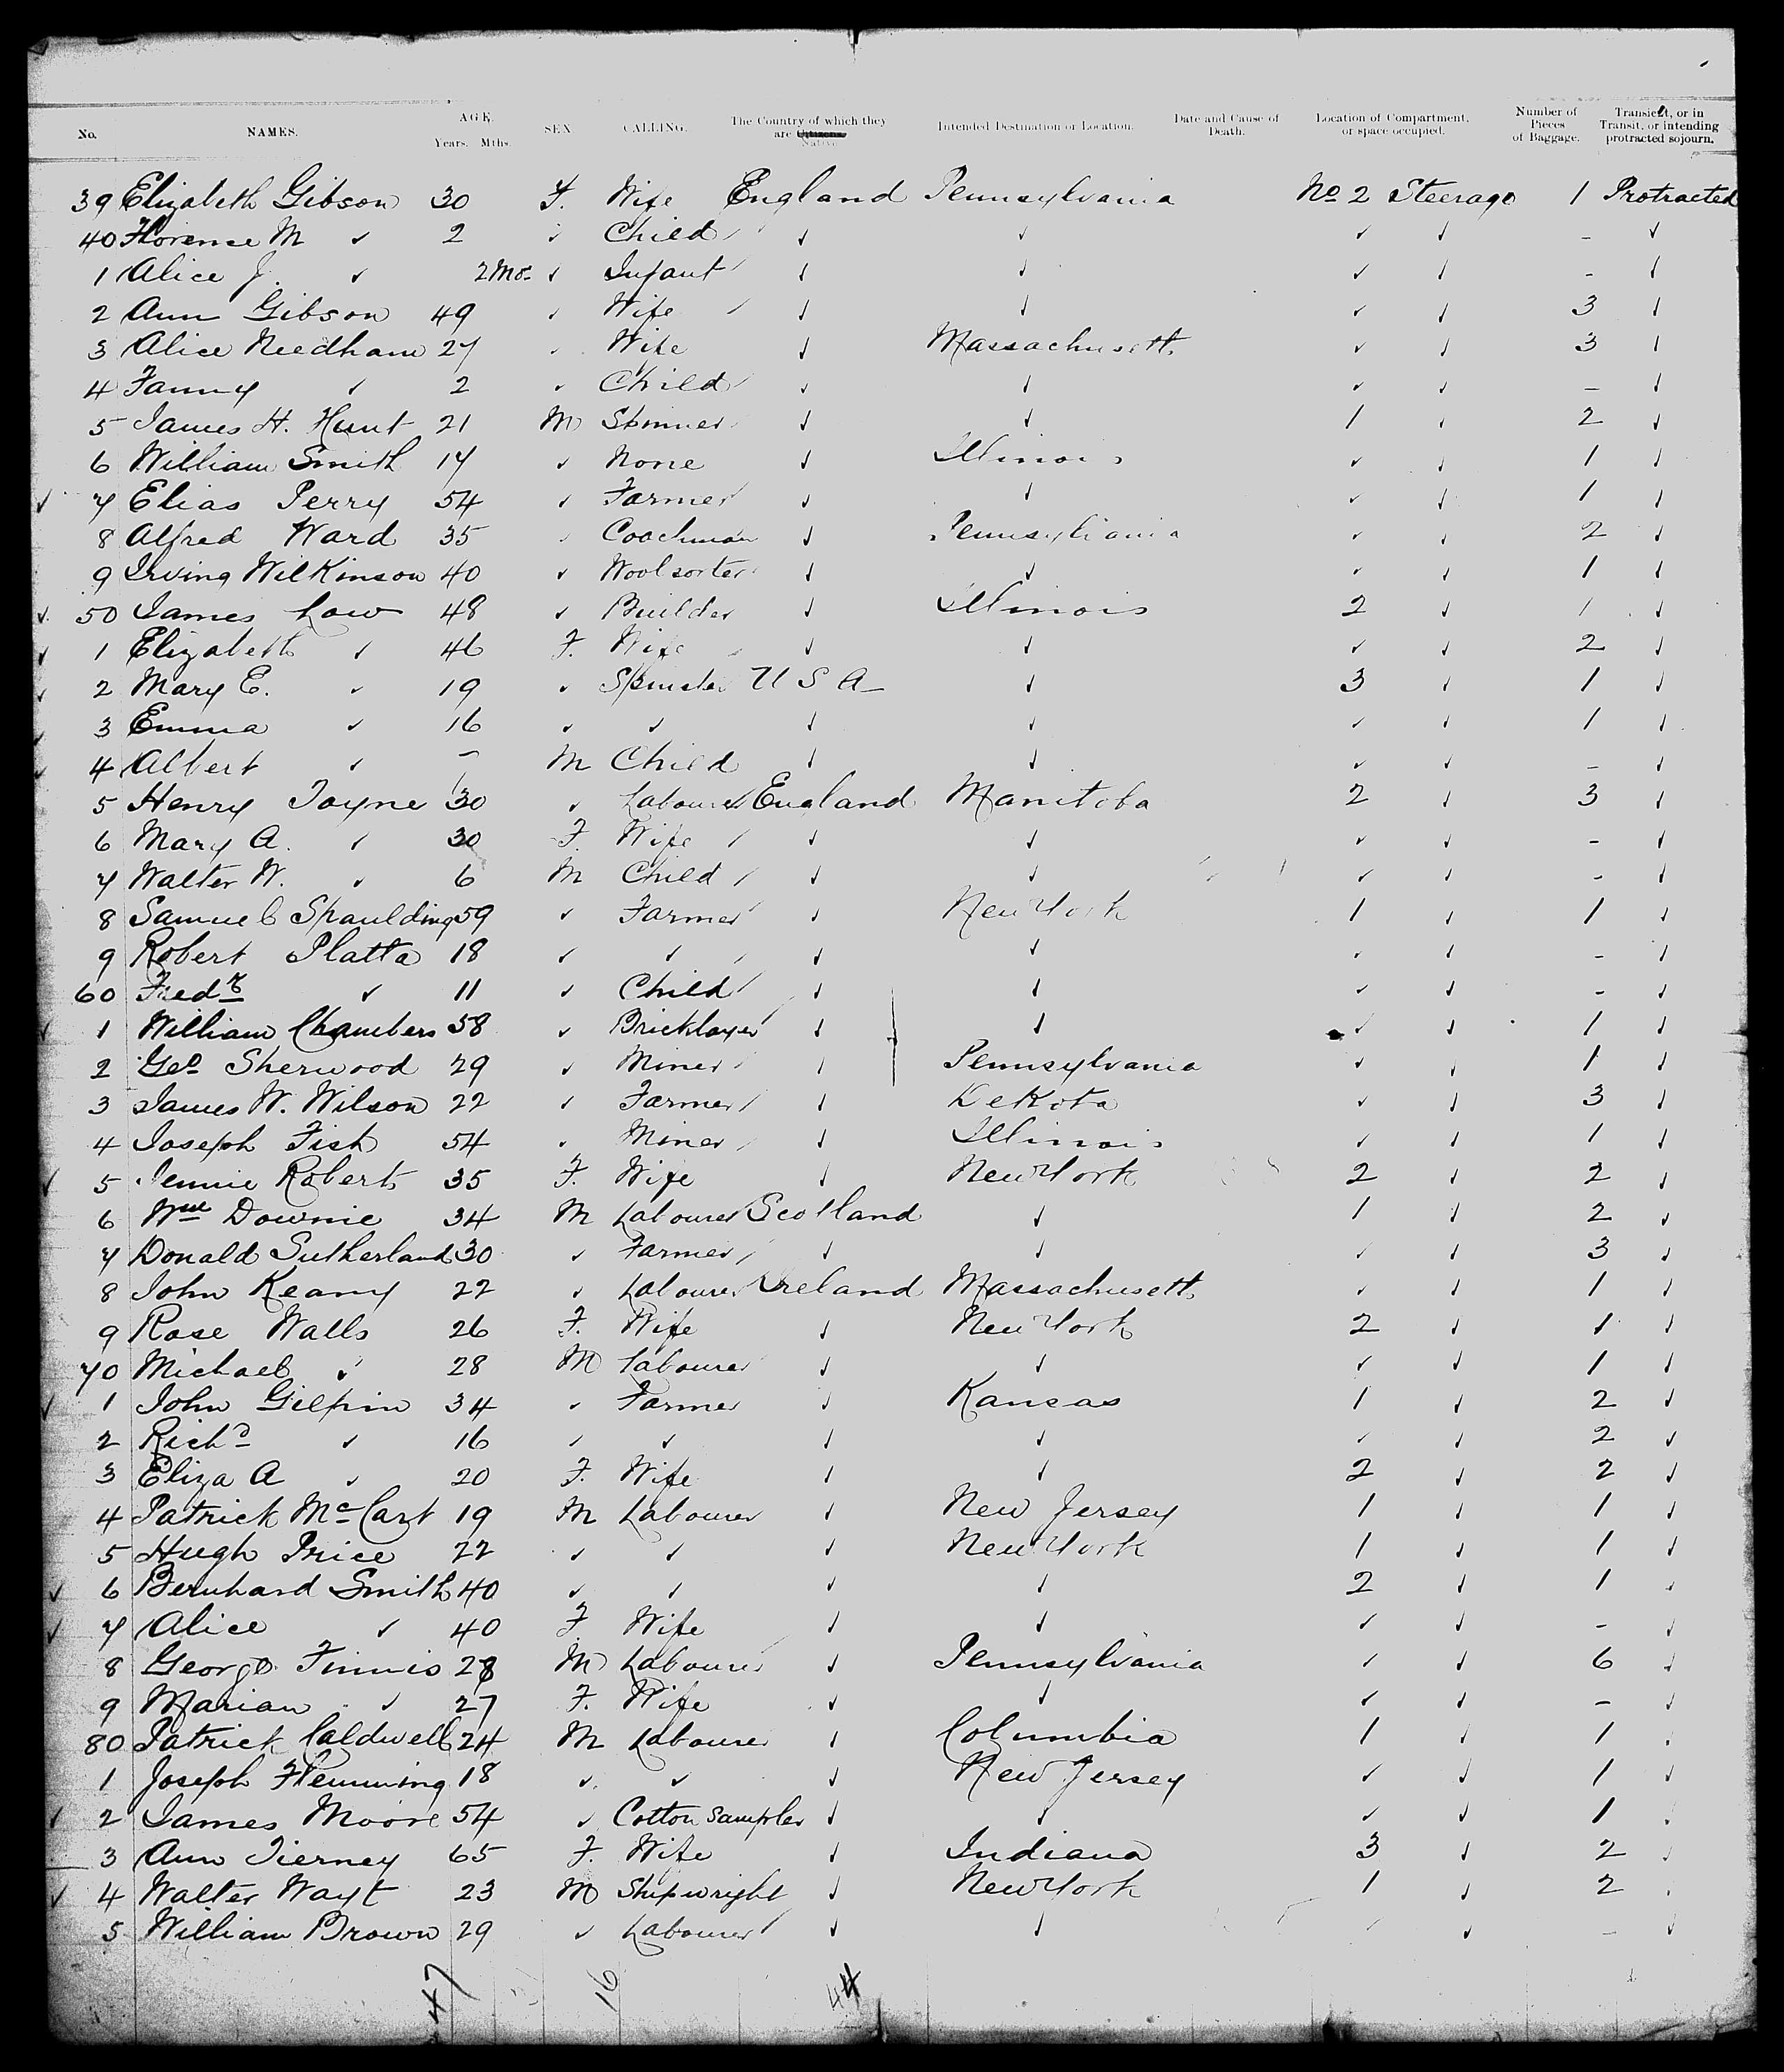 No. NAMES. AGE. Years. Mths. SEX. CALLING. The Country of which they are Citizens. Native Intended Destination or Location. Date and Cause of Death. Location of Compartment, or space occupied. Number of Pieces of Baggage. Transient, or in Transit, or intending protracted sojourn.
39 Elizabeth Gibson 30 F. Wife England Pennsylvania No 2 Steerage 1 Protracted
40 Florence M ✓ 2 ✓ Child ✓ ✓ ✓ ✓ - ✓
1 Alice J. ✓ 2 Mos ✓ Infant ✓ ✓ ✓ ✓ - ✓
2 Ann Gibson 49 ✓ Wife ✓ ✓ ✓ ✓ 3 ✓
3 Alice Needham 27 ✓ Wife ✓ Massachusetts ✓ ✓ 3 ✓
4 Fanny ✓ 2 ✓ Child ✓ ✓ ✓ ✓ - ✓
5 James H. Hunt 21 M Spinner ✓ ✓ 1 ✓ 2 ✓
6 William Smith 17 ✓ None ✓ Illinois ✓ ✓ 1 ✓
✓ 7 Elias Perry 54 ✓ Farmer ✓ ✓ ✓ ✓ 1 ✓
8 Alfred Ward 35 ✓ Coachman ✓ Pennsylvania ✓ ✓ 2 ✓
9 Irving Wilkinson 40 ✓ Woolsorter ✓ ✓ ✓ ✓ 1 ✓
✓ 50 James Low 48 ✓ Builder ✓ Illinois 2 ✓ 1 ✓
✓ 1 Elizabeth ✓ 46 F. Wife ✓ ✓ ✓ ✓ 2 ✓
✓ 2 Mary E. ✓ 19 ✓ Spinster U S A ✓ 3 ✓ 1 ✓
✓ 3 Emma ✓ 16 ✓ ✓ ✓ ✓ ✓ ✓ 1 ✓
✓ 4 Albert ✓ - M Child ✓ ✓ ✓ ✓ - ✓
5 Henry Joyne 30 ✓ Labourer England Manitoba 2 ✓ 3 ✓
6 Mary A. ✓ 30 F. Wife ✓ ✓ ✓ ✓ - ✓
7 Walter W. ✓ 6 M Child ✓ ✓ ✓ ✓ - ✓
8 Samuel Spaulding 59 ✓ Farmer ✓ New York 1 ✓ 1 ✓
9 Robert Platta 18 ✓ ✓ ✓ ✓ ✓ ✓ - ✓
60 Fredk ✓ 11 ✓ Child ✓ ✓ ✓ ✓ - ✓
✓ 1 William Chambers 58 ✓ Bricklayer ✓ ✓ ✓ ✓ 1 ✓
2 Geo Sherwood 29 ✓ Miner ✓ Pennsylvania ✓ ✓ 1 ✓
3 James W. Wilson 22 ✓ Farmer ✓ Dekota ✓ ✓ 3 ✓
4 Joseph Fish 54 ✓ Miner ✓ Illinois ✓ ✓ 1 ✓
✓ 5 Jennie Roberts 35 F. Wife ✓ New York 2 ✓ 2 ✓
6 Wm Downie 34 M Labourer Scotland ✓ 1 ✓ 2 ✓
7 Donald Sutherland 30 ✓ Farmer ✓ ✓ ✓ ✓ 3 ✓
8 John Keany 22 ✓ Labourer Ireland Massachusetts ✓ ✓ 1 ✓
9 Rose Walls 26 F. Wife ✓ New York 2 ✓ 1 ✓
70 Michael ✓ 28 M Labourer ✓ ✓ ✓ ✓ 1 ✓
✓ 1 John Gilpin 34 ✓ Farmer ✓ Kansas 1 ✓ 2 ✓
2 Richd ✓ 16 ✓ ✓ ✓ ✓ ✓ ✓ 2 ✓
3 Eliza A ✓ 20 F. Wife ✓ ✓ 2 ✓ 2 ✓
4 Patrick McCart 19 M Labourer ✓ New Jersey 1 ✓ 1 ✓
5 Hugh Price 22 ✓ ✓ ✓ New York 1 ✓ 1 ✓
✓ 6 Bernhard Smith 40 ✓ ✓ ✓ ✓ 2 ✓ 1 ✓
✓ 7 Alice ✓ 40 F Wife ✓ ✓ ✓ ✓ - ✓
8 George Finnis 28 M Labourer ✓ Pennsylvania ✓ ✓ 6 ✓
9 Marian ✓ 27 F. Wife ✓ ✓ ✓ ✓ - ✓
80 Patrick Caldwell 24 M Labourer ✓ Columbia 1 ✓ 1 ✓
1 Joseph Flemming 18 ✓ ✓ ✓ New Jersey ✓ ✓ 1 ✓
✓ 2 James Moore 54 ✓ Cotton Sampler ✓ ✓ ✓ ✓ 1 ✓
3 Ann Tierney 65 F. Wife ✓ Indiana 3 ✓ 2 ✓
✓ 4 Walter Wayt 23 M Shipwright ✓ New York 1 ✓ 2 ✓
5 William Brown 29 ✓ Labourer ✓ ✓ ✓ ✓ - ✓
47 16 44